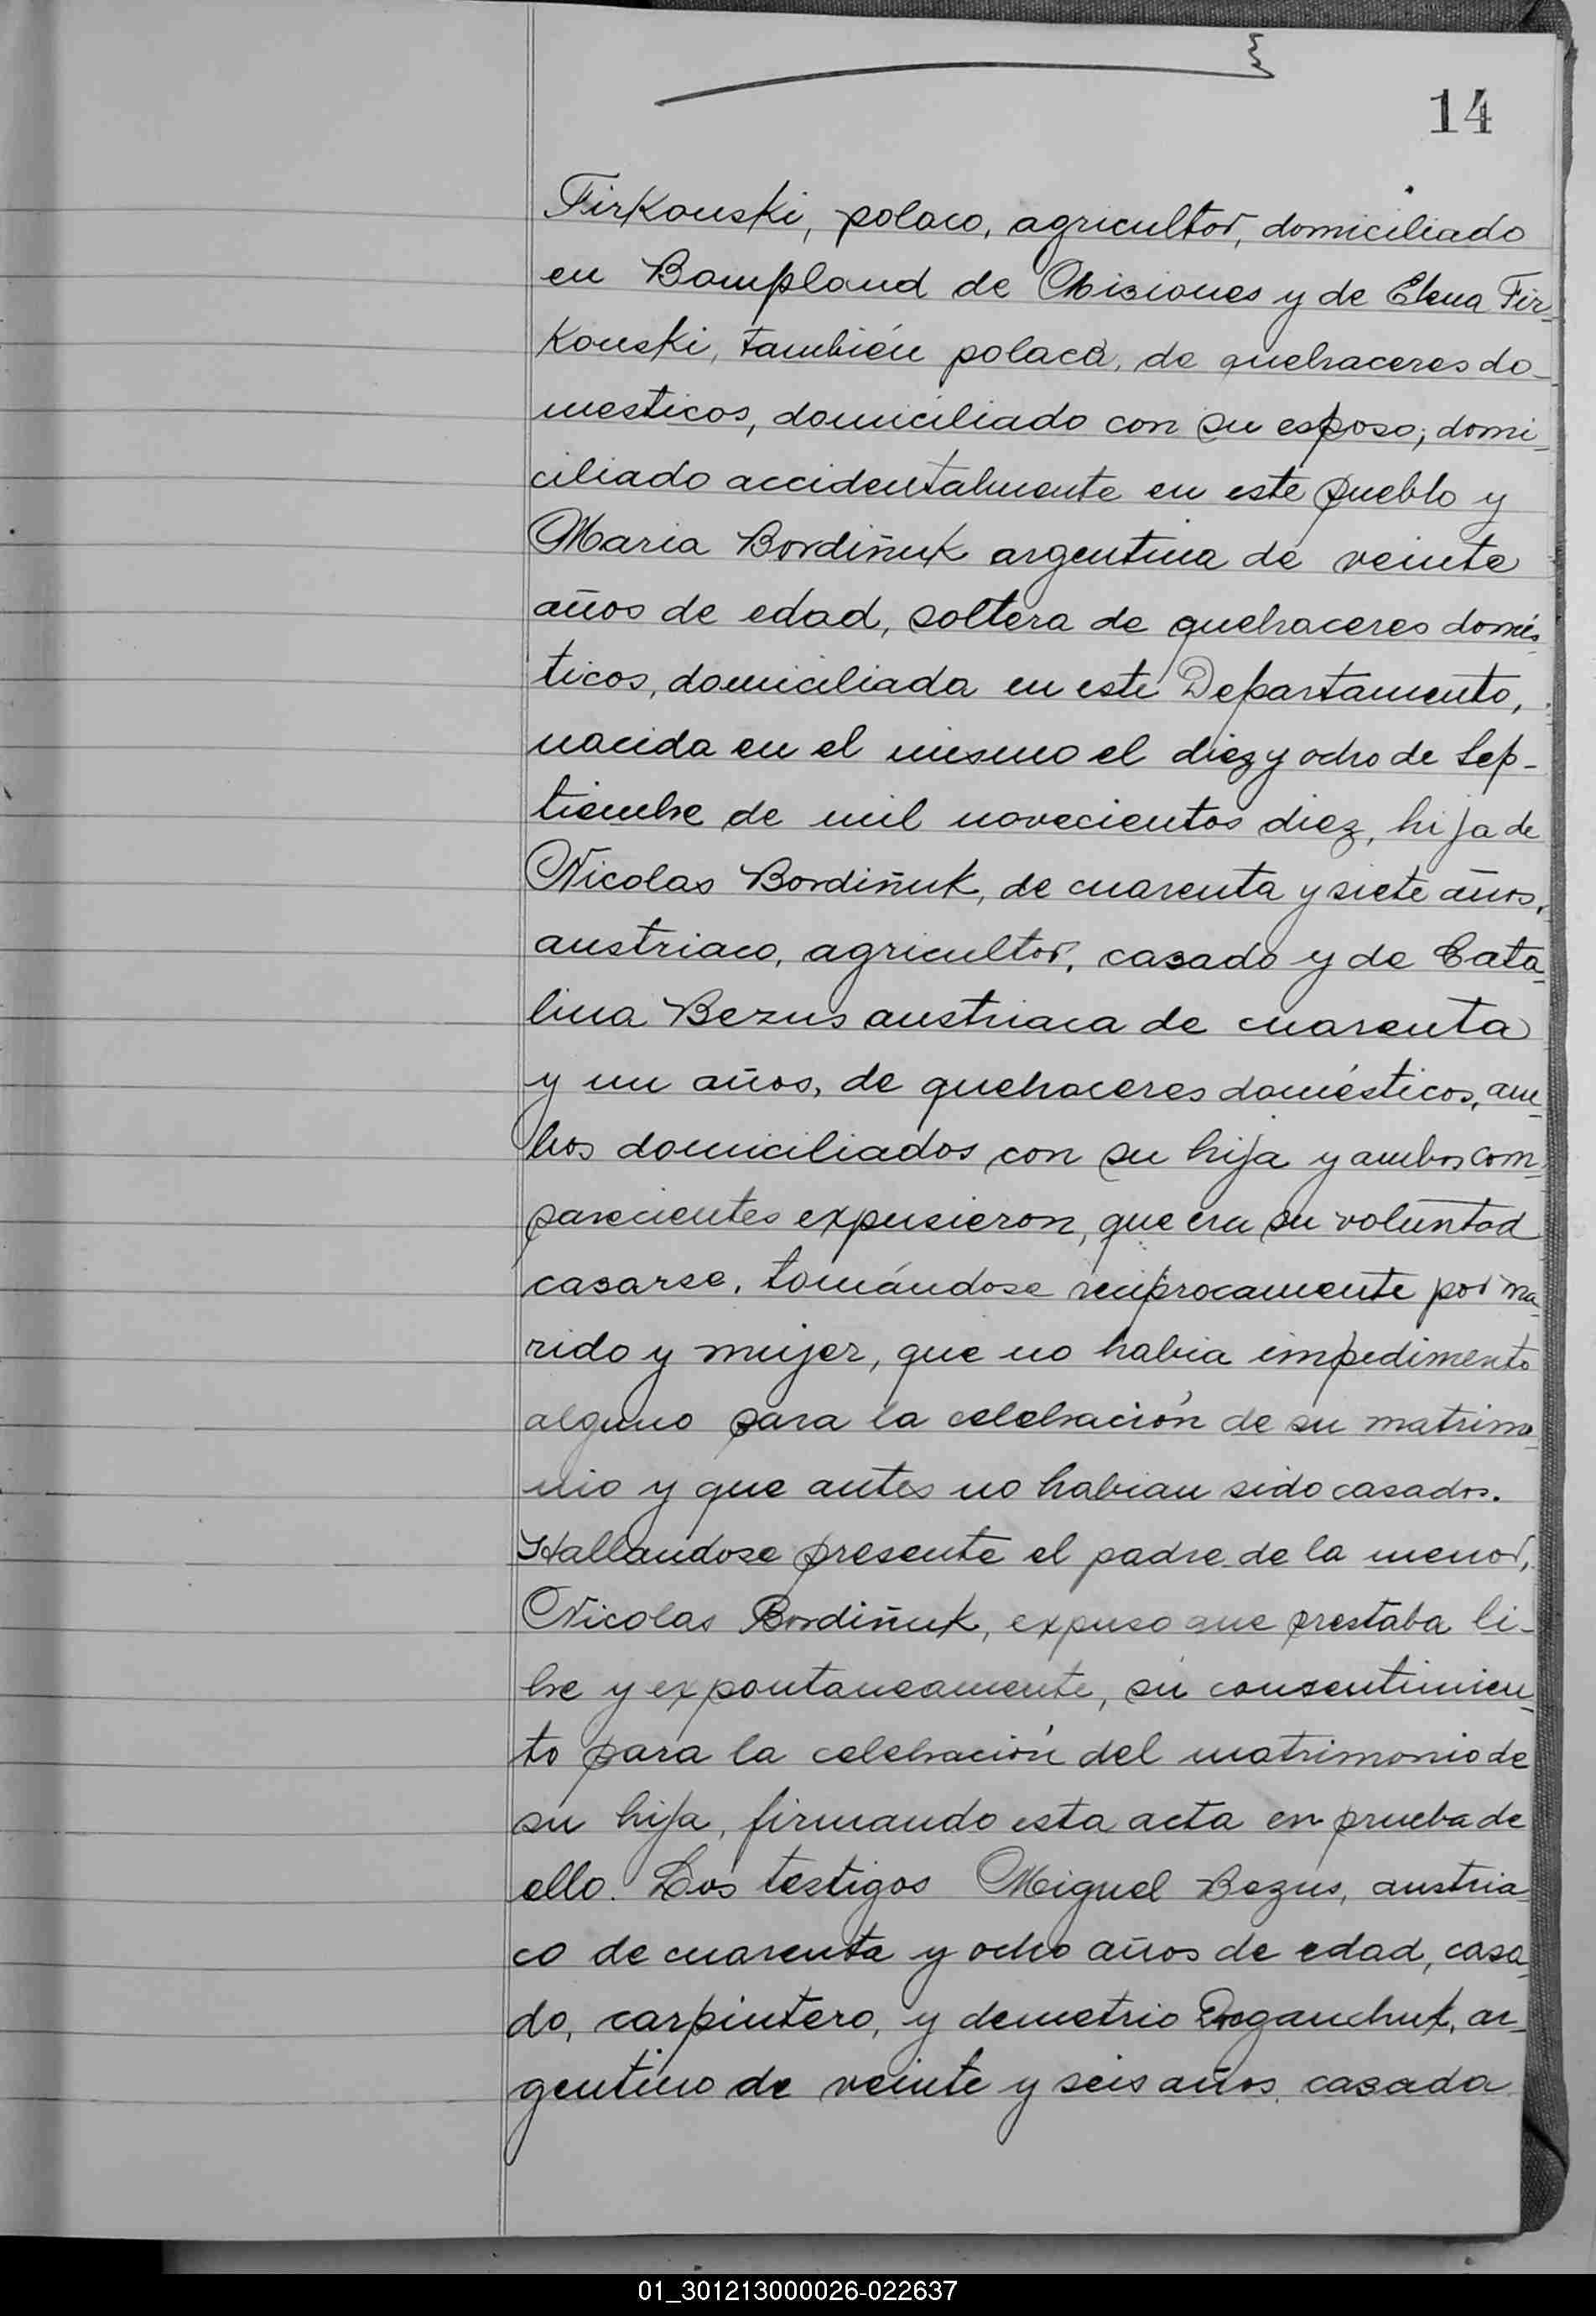 14
Firkouski, polaco, agricultor, domiciliado
en Bompland de Misiones y de Elena Fir-
kouski, también polaca, de quehaceres do-
mesticos, domiciliado con su esposo; domi-
ciliado accidentalmente en este pueblo y
Maria Bordiñuk argentina de veinte
años de edad, soltera de quehaceres domés-
ticos, domiciliada en este Departamento,
nacida en el mismo el diez y ocho de Sep-
tiembre de mil novecientos diez, hija de
Nicolas Bordiñuk, de cuarenta y siete años,
austriaco, agricultor, casado y de Cata-
lina Bezus austriaca de cuarenta
y un años, de quehaceres domésticos, am-
bos domiciliados con su hija y ambos com-
parecientes expusieron, que era su voluntad
casarse, tomándose reciprocamente por ma-
rido y mujer, que no habia impedimento
alguno para la celebración de su matrimo-
nio y que antes no habian sido casados.
Hallandose presente el padre de la menor,
Nicolas Bordiñuk, expuso que prestaba li-
bre y expontaneamente, su consentimien-
to para la celebración del matrimonio de
su hija, firmando esta acta en prueba de
ello. Los testigos Miguel Bezus, austria-
co de cuarenta y ocho años de edad, casa-
do, carpintero, y demetrio Doganchuk, ar-
gentino de veinte y seis años, casada
01_301213000026-022637